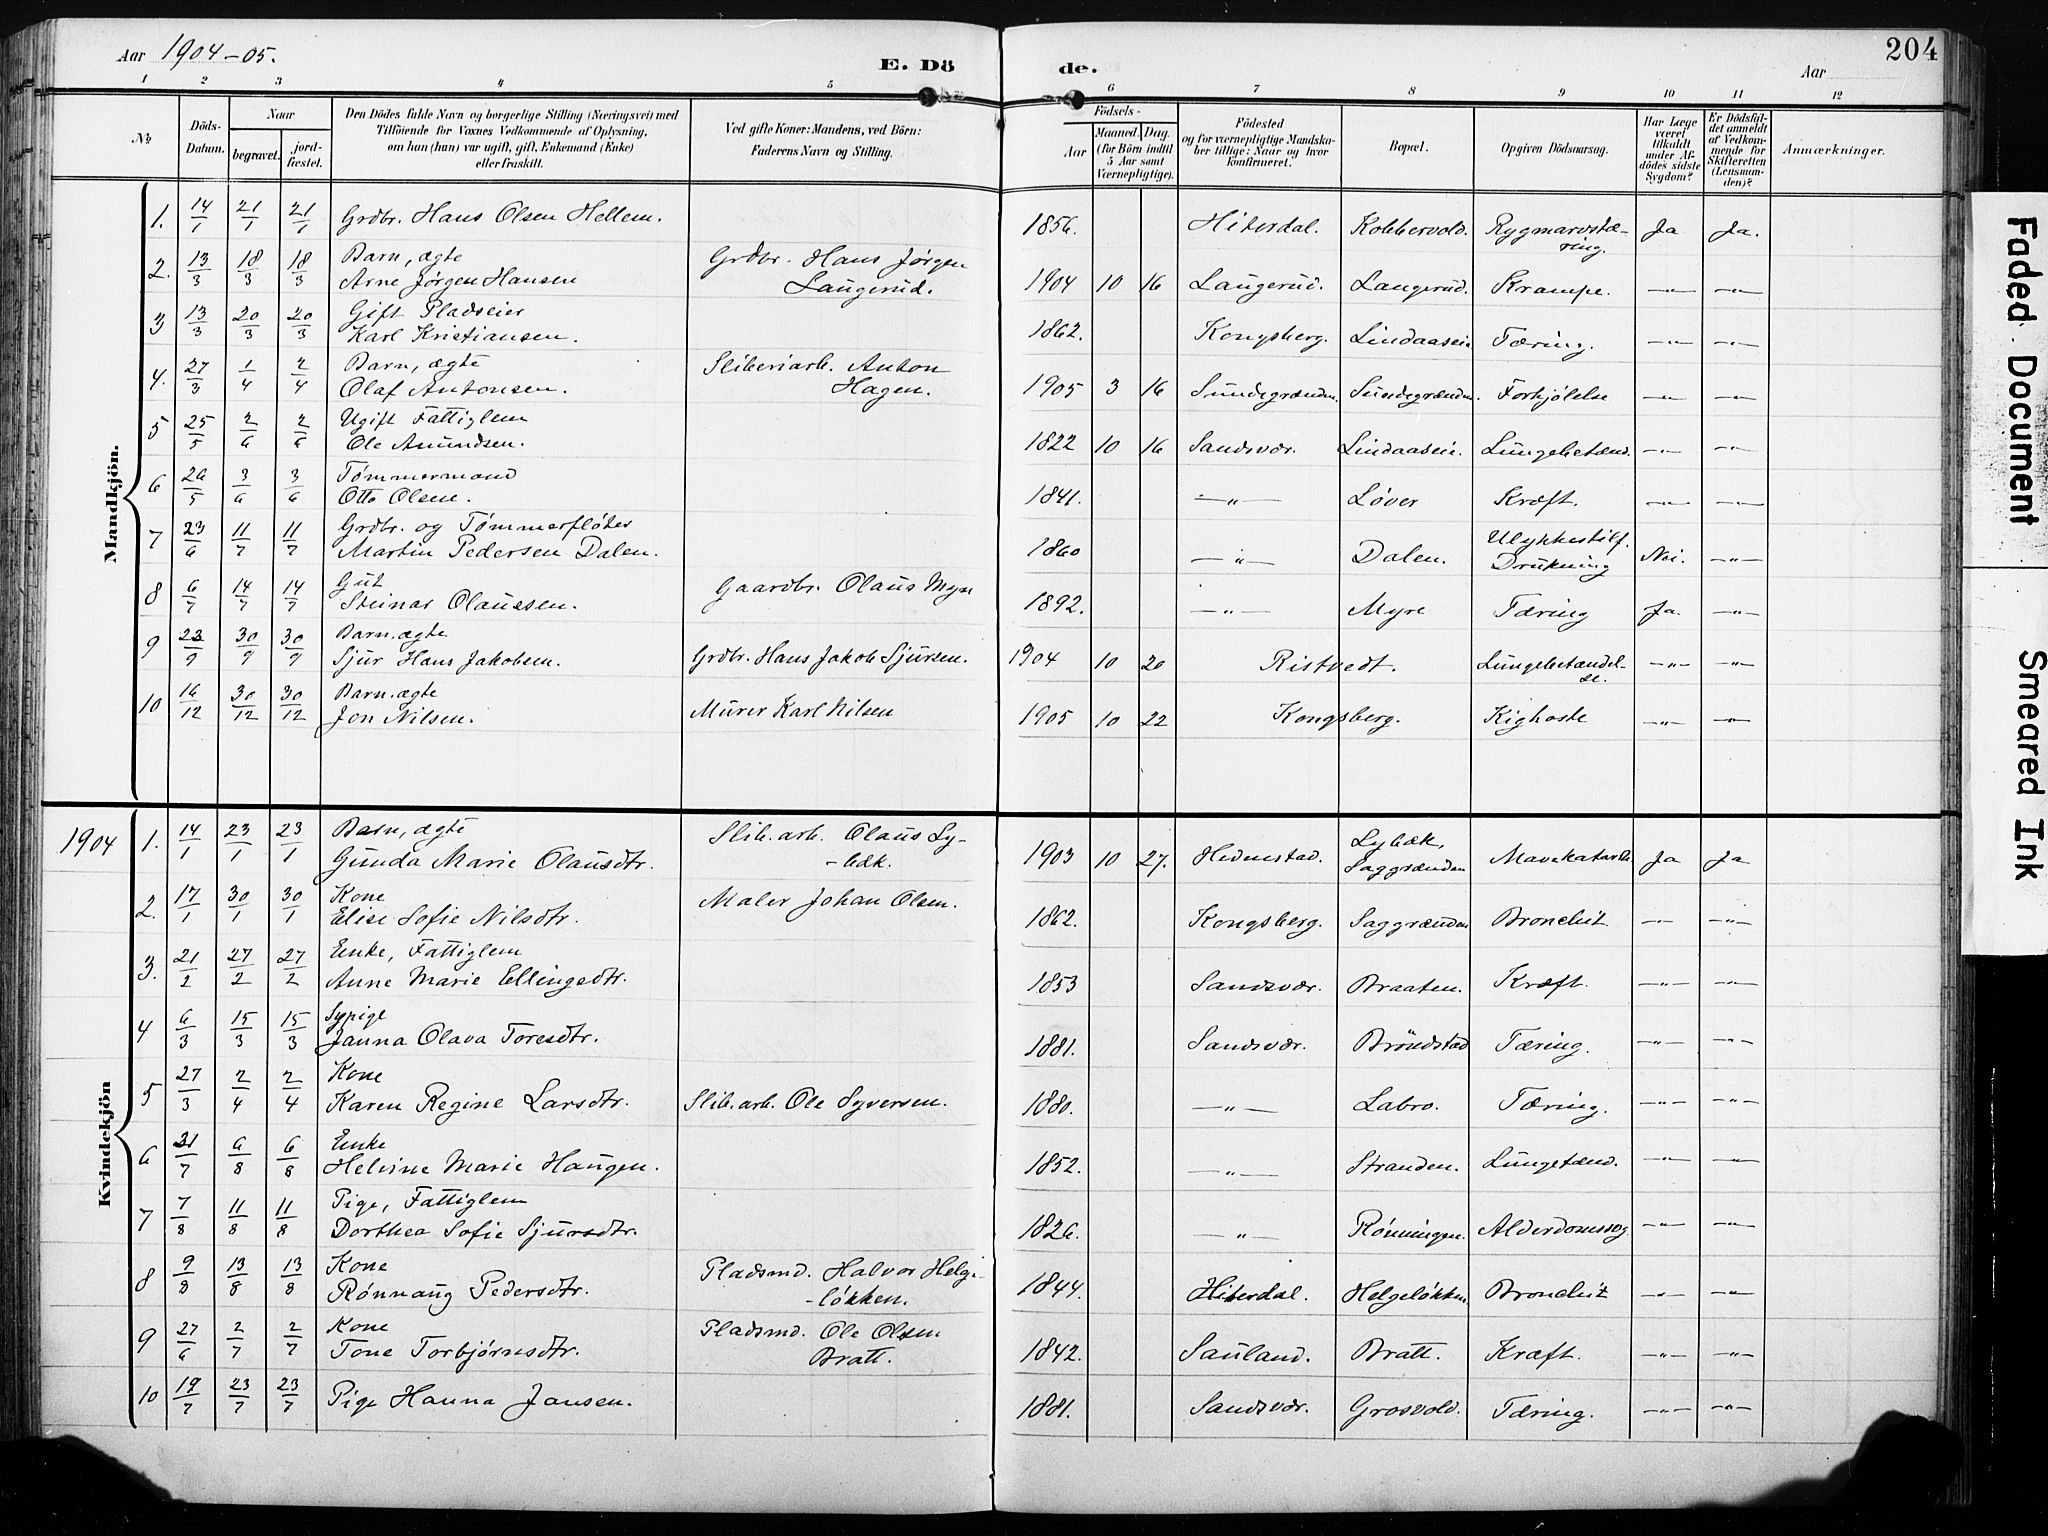 Aar 1904-05.
E. Dö
de.
Aar
204
1 2 3 4 5 6 7 8 9 10 11 12
№
Döds-Datum.
Naar
begravet.
jordfæstet.
Den Dödes fulde Navn og borgerlige Stilling (Næringsvei) med
Tilföiende for Voxnes Vedkommende af Oplysning,
om han (hun) var ugift, gift, Enkemand (Enke)
eller fraskilt.
Ved gifte Koner: Mandens, ved Börn:
Faderens Navn og Stilling.
Födsels-
Aar
Maaned. Dag.
(for Börn indtil
5 Aar samt
Værnepligtige).
Födested
og for værnepligtige Mandska-
ber tillige: Naar og hvor
konfirmeret.
Bopæl.
Opgiven Dödsaarsag.
Har Læge
været
tilkaldt
under Af-
dödes sidste
Sygdom?
Er Dödsfal-
det anmeldt
af Vedkom-
mende for
Skifteretten
(Lensman-
den)?
Anmærkninger.
Mandkjön.
1. 14/1 21/1 21/1 Grdbr. Hans Olsen Hellem. 1856. Hiterdal. Kobbervold. Rygmarvstæ-
ring. Ja Ja.
2. 13/3 18/3 18/3 Barn, ægte
Arne Jørgen Hansen
Grdbr. Hans Jørgen
Laugerud.
1904 10 16 Laugerud. Laugerud. Krampe. —"— —"—
3 13/3 20/3 20/3 Gift Pladseier
Karl Kristiansen. 1862. Kongsberg. Lindaaseie Tæring. —"— —"—
4. 27/3 1/4 2/4 Barn, ægte
Olaf Antonsen.
Sliberiarb. Anton
Hagen.
1905 3 16 Sundegrænden. Sundegrænden. Forkjølelse —"— —"—
5 25/5 2/6 2/6 Ugift Fattiglem
Ole Amundsen. 1822 10 16 Sandsvær. Lindaaseie. Lungebetænd. —"— —"—
6 26/5 3/6 3/6 Tømmermand
Otto Olsen. 1841. —"— Løver Kræft. —"— —"—
7 23/6 11/7 11/7 Grdbr. og Tømmerfløter
Martin Pedersen Dalen. 1860 —"— Dalen. Ulykkestilf.
Drukning Nei. —"—
8 6/7 14/7 14/7 Gut
Steinar Olaussen.
Gaardbr. Olaus Myre
1892. —"— Myre Tæring Ja —"—
9 23/9 30/9 30/9 Barn. ægte
Sjur Hans Jakobsen. Grdbr. Hans Jakob Sjursen. 1904 10 20 Ristvedt. Lungebetændel-
se. —"— —"—
10 16/12 30/12 30/12 Barn. ægte
Jon Nilsen. Murer Karl Nilsen 1905 10 22 Kongsberg. Kighoste —"— —"—
Kvindekjön
1904 1. 14/1 23/1 23/1 Barn, ægte
Gunda Marie Olausdtr.
Slib.arb. Olaus Ly-
-bæk.
1903 10 27. Hedenstad. Lybæk,
Saggrænden Mavekatarh Ja Ja
2. 17/1 30/1 30/1 Kone
Elise Sofie Nilsdtr.
Maler Johan Olsen.
1862. Kongsberg. Saggrænden Bronchit. —"— —"—
3. 21/2 27/2 27/2 Enke, Fattiglem
Anne Marie Ellingsdtr. 1853 Sandsvær. Braaten. Kræft. —"— —"—
4 6/3 15/3 15/3 Sypige
Janna Olava Toresdtr. 1881. Sandsvær. Brøndstad Tæring. —"— —"—
5 27/3 2/4 2/4 Kone
Karen Regine Larsdtr. Slib.arb. Ole Syversen. 1880. —"— Labro. Tæring. —"— —"—
6 31/7 6/8 6/8 Enke
Helvine Marie Haugen. 1852. —"— Stranden. Lungetænd. —"— —"—
7 7/8 11/8 11/8 Pige, Fattiglem
Dorthea Sofie Sjursdtr. 1826. —"— Rønningen. Alderdomssvg —"— —"—
8 9/8 13/8 13/8 Kone
Rønnaug Pedersdtr.
Pladsmd. Halvor Helge-
-løkken.
1844. Hiterdal. Helgeløkken Bronchit —"— —"—
9 27/6 2/7 2/7 Kone
Tone Torbjørnsdtr.
Pladsmd. Ole Olsen
Bratt.
1842. Sauland. Bratt. Kræft. —"— —"—
10 19/7 23/7 23/7 Pige Hanna Jansen. 1881. Sandsvær. Grosvold. Tæring. —"— —"—
Faded Document
Smeared Ink